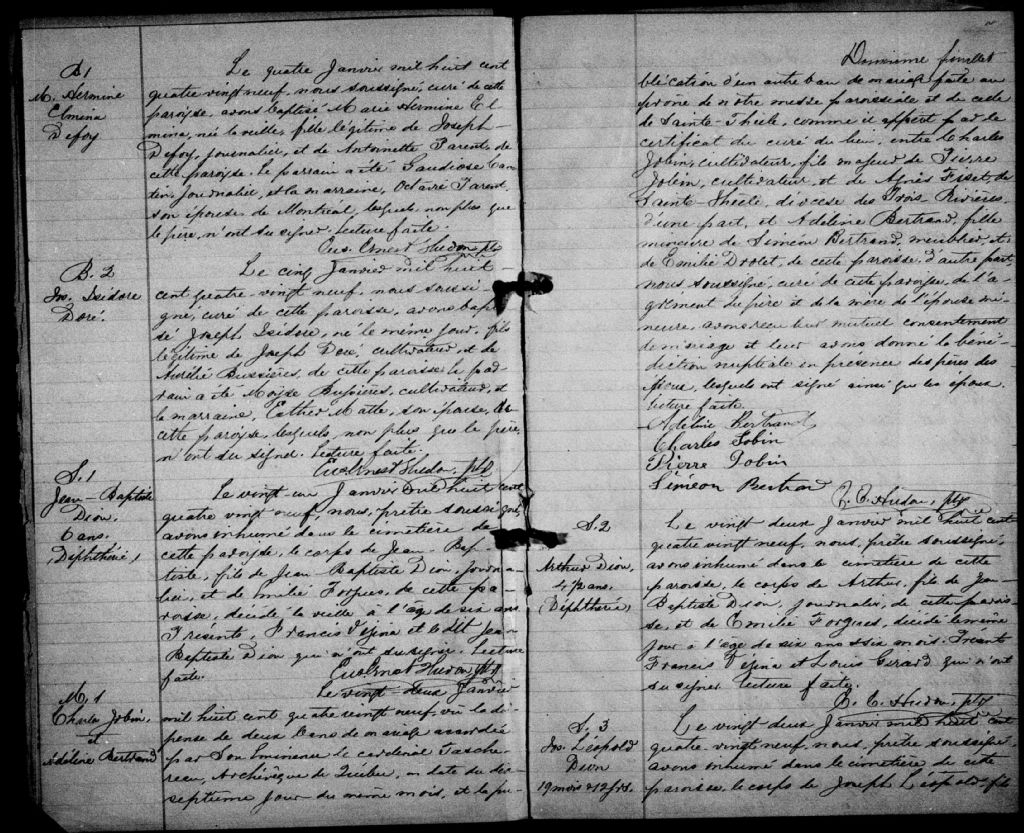 B 1
M. Hermine
Elmina
Defoy
Le quatre Janvier mil huit cent
quatre vingt neuf, nous soussigné, curé de cette
paroisse avons baptisé Marie Hermine El
mina, née la veille, fille légitime de Joseph
Defoy, journalier, et de Antoinette Parent, de
cette paroisse. Le parrain a été Gaudiose Can
tin, Journalier, et la marraine, Octavie Parent,
son épouse, de Montréal, lesquels non plus que
le père, n'ont su signer. Lecture faite.
Eus. Ernest Hudon, ptre
B. 2
Jos. Isidore
Doré.
Le cinq Janvier mil huit
cent quatre-vingt neuf, nous soussi-
gné, curé de cette paroisse, avons bapti
sé Joseph Isidore, né le même jour, fils
légitime de Joseph Doré, cultivateur, et de
Aurélie Bussières, de cette paroisse. Le par
rain a été Moyse Bussières, cultivateur, et
la marraine, Esther Matte, son épouse, de
cette paroisse, lesquels, non plus que le père,
n'ont su signer. Lecture faite.
Eus. Ernest Hudon, ptre
S. 1
Jean-Baptiste
Dion.
6 ans.
(Diphthérie)
Le vingt-un Janvier mil huit cent
quatre vingt neuf, nous, prêtre soussigné,
avons inhumé dans le cimetière de
cette paroisse, le corps de Jean-Bap-
tiste, fils de Jean-Baptiste Dion, journa-
lier, et de Emilie Forgues, de cette pa-
roisse, décédé la veille à l'âge de six ans
Présents, Francis Vésina et le dit Jean
Baptiste Dion qui n'ont su signer. Lecture
faite.
Eus. Ernest Hudon, ptre
M. 1
Charles Jobin,
et
Adeline Bertrand
Le vingt deux Janvier
mil huit cent quatre vingt neuf, vu la dis-
pense de deux bans de mariage accordée
par Son Eminence le cardinal Tasche-
reau, Archévêque de Québec, en date du dix-
septième jour du même mois, et la pu-
Deuxième feuillet
blication d'un autre ban de mariage faite au
prône de notre messe paroissiale et de celle
de Sainte-Thècle, comme il appert par le
certificat du curé du lieu, entre Charles
Jobin, cultivateur, fils majeur de Pierre
Jobin, cultivateur, et de Agnès Fiset, de
Sainte Thècle, diocèse des Trois Rivières,
d'une part, et Adeline Bertrand, fille
mineure de Siméon Bertrand, meublier et
de Emilie Drolet, de cette paroisse, d'autre part,
nous, soussigné, curé de cette paroisse, de l'a-
grément du père et de la mère de l'épouse mi-
neure, avons reçu leur mutuel consentement
de mariage et leur avons donné la béné-
diction nuptiale en présence des pères des
époux, lesquels ont signé ainsi que les époux.
Lecture faite.
Adeline Bertrand
Charles Jobin
Pierre Jobin
Siméon Bertrand
E. E. Hudon, ptre
S. 2
Arthur Dion,
4 1/2 ans.
(Diphthérie)
Le vingt deux Janvier mil huit cent
quatre vingt neuf, nous, prêtre soussigné,
avons inhumé dans le cimetière de cette
paroisse, le corps de Arthur, fils de Jean
Baptiste Dion, journalier, de cette parois-
se, et de Emilie Forgues, décédé le même
jour à l'âge de six ans six mois. Présents
Francis Vésina et Louis Girard qui n'ont
su signer. Lecture faite.
E. E. Hudon, ptre
S. 3
Jos. Léopold
Dion
19 mois & 12 jrs.
Le vingt deux Janvier mil huit cent
quatre-vingt neuf, nous, prêtre soussigné,
avons inhumé dans le cimetière de cette
paroisse, le corps de Joseph Léopold, fils